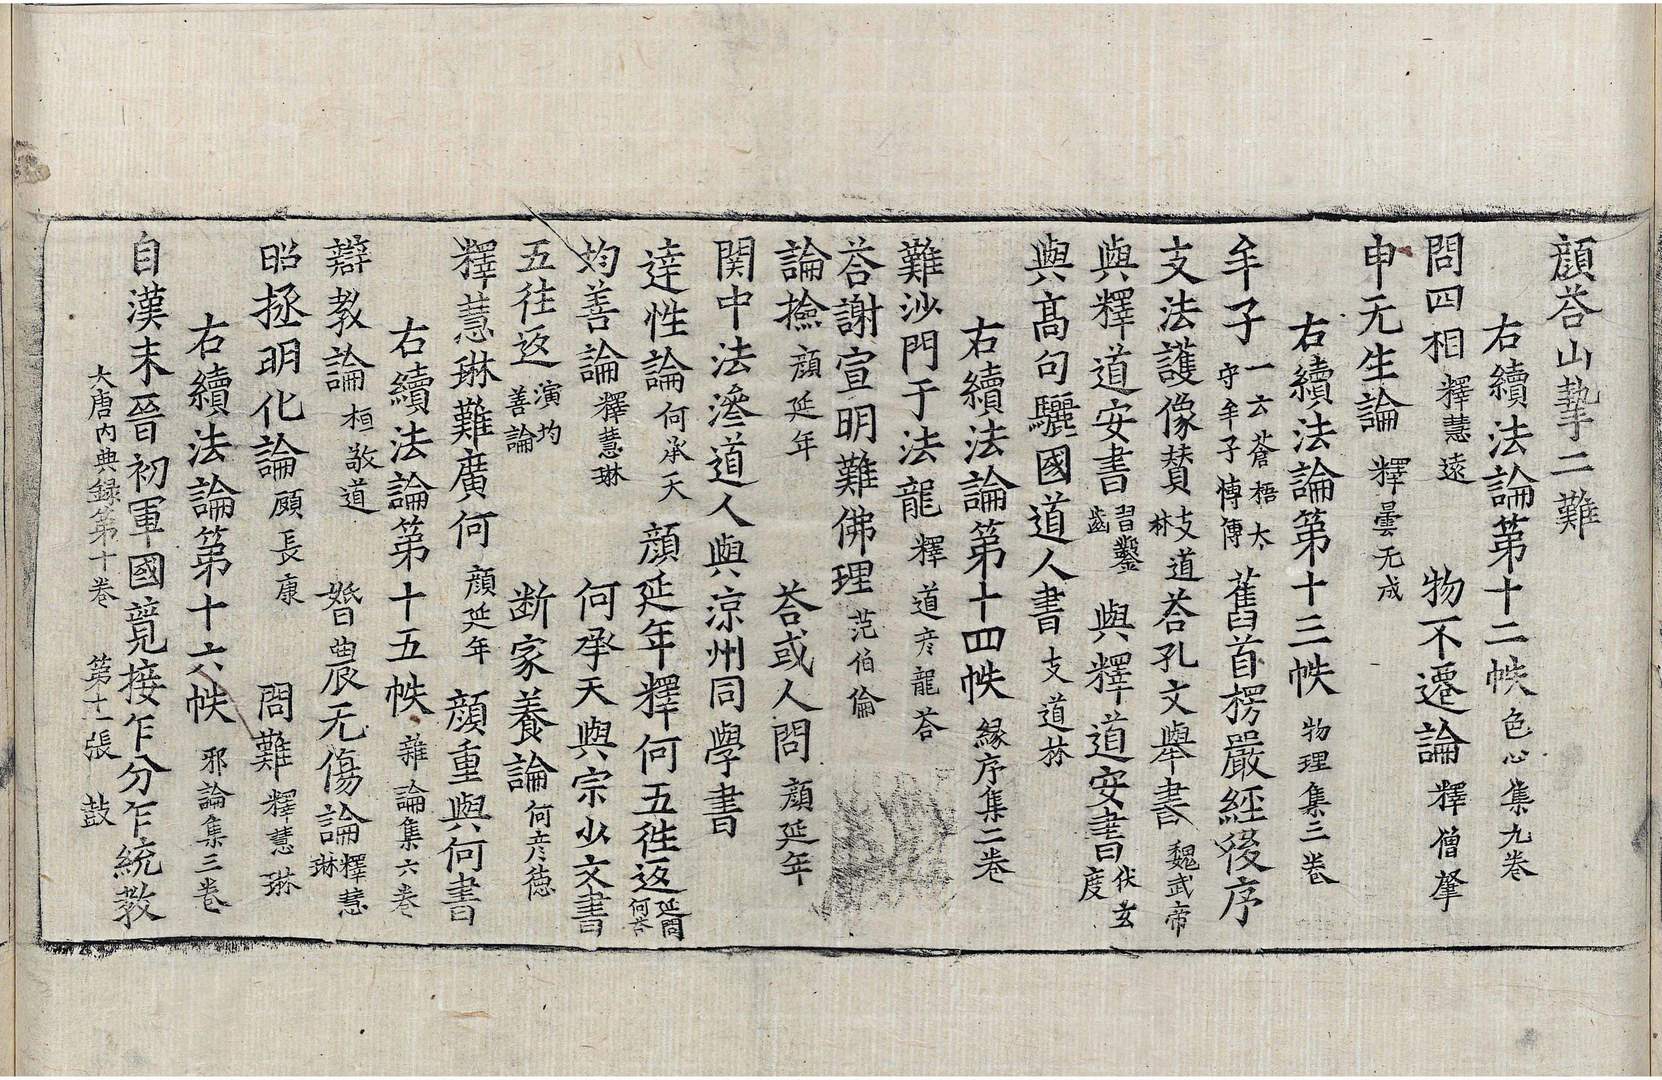 顔荅山摯二難
右續法論第十二帙 色心集九卷
問四相 釋慧遠 物不遷論 釋僧肇
申无生論 釋曇无成
右續法論第十三帙 物理集三卷
牟子 一云蒼梧太守牟子博傳 舊首楞嚴經後序
支法護像賛 支道林 道荅孔文舉書 魏武帝
與釋道安書 習鑿齒 與釋道安書 伏玄度
與髙句驪國道人書 支道林
右續法論第十四帙 縁序集二卷
難沙門于法龍 釋道彦龍荅
荅謝宣明難佛理 范伯倫
論撿 顔延年 荅或人問 顔延年
関中法𭰫道人與涼州同學書
逹性論 何承天 顔延年釋何五徃返 延問何荅
均善論 釋慧琳 何承天與宗少文書
五往返 演均善論 断家養論 何彦德
釋慧琳難廣何 顔延年 顔重與何書
右續法論第十五帙 雜論集六卷
辯教論 桓敬道 㬰農无傷論 釋慧琳
昭拯明化論 顧長康 問難 釋慧琳
右續法論第十六帙 邪論集三卷
自漢末晉初軍國競接乍分乍統教
大唐內典錄第十卷 第十一張 鼓